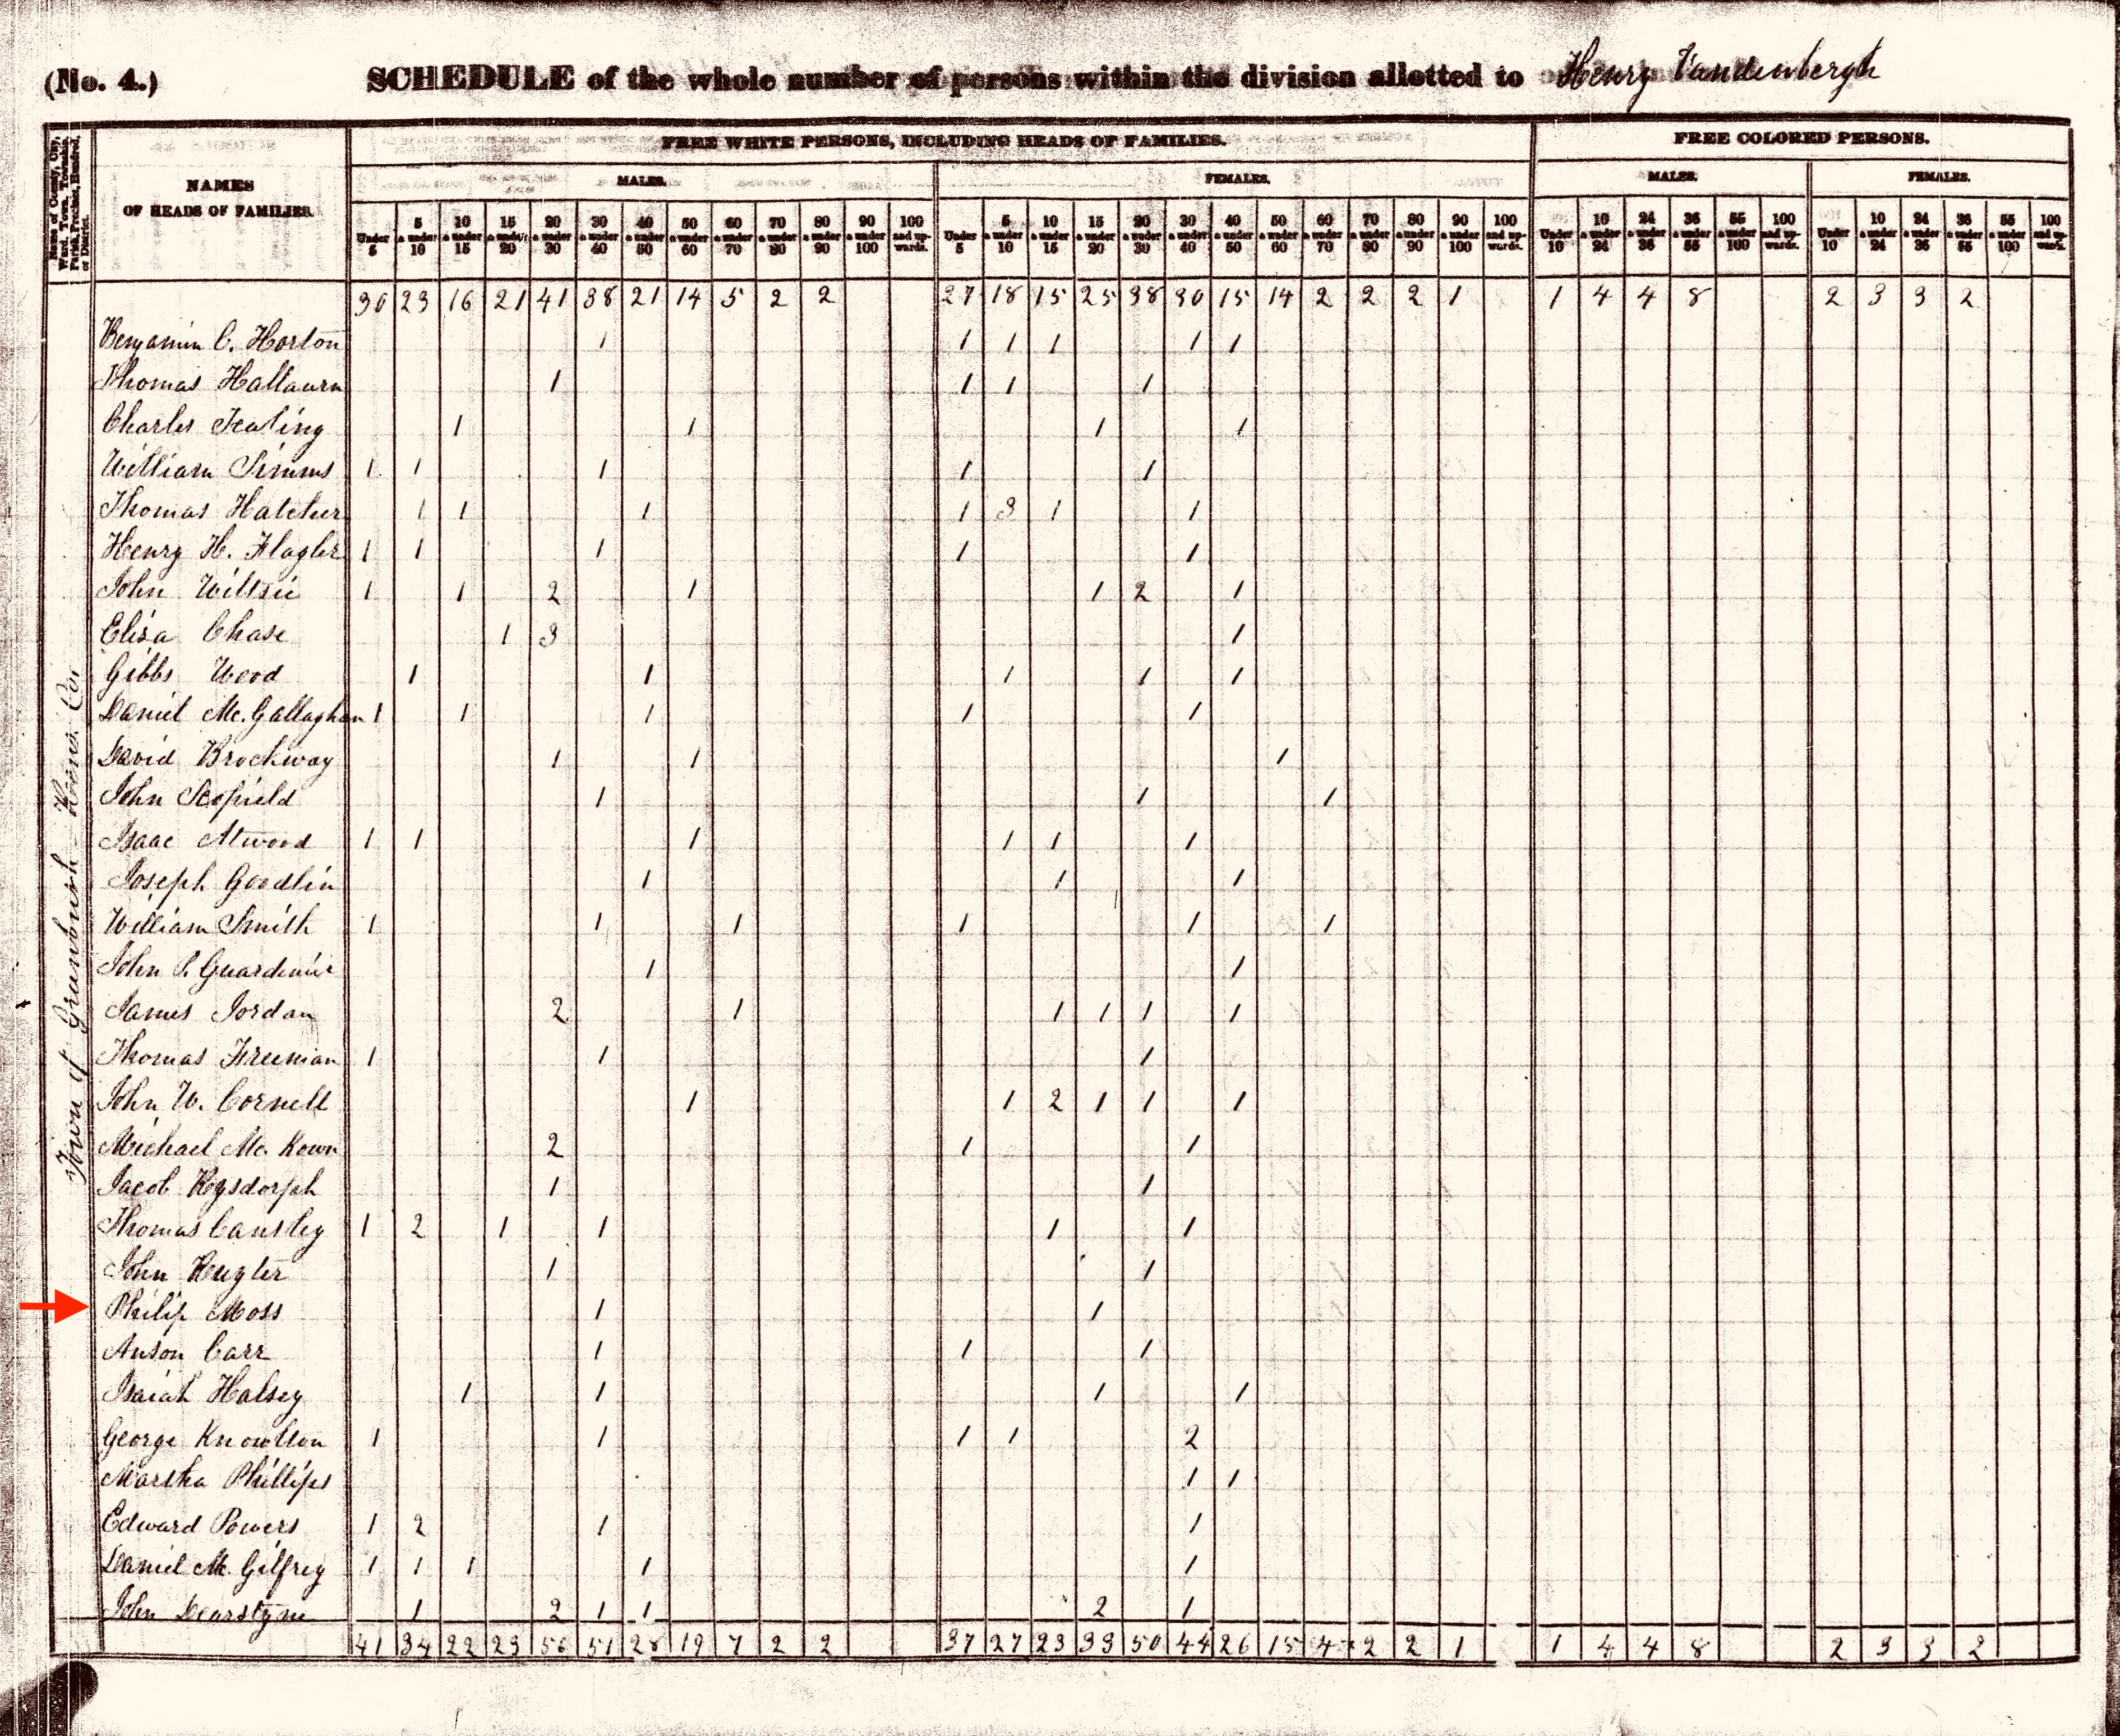 (No. 4.) SCHEDULE of the whole number of persons within the division allotted to Henry Vandenbergh
Name of County, City, Ward, Town, Township, Parish, Precinct, Hundred, or District.
NAMES
OF HEADS OF FAMILIES.
FREE WHITE PERSONS, INCLUDING HEADS OF FAMILIES.
FREE COLORED PERSONS.
MALES. FEMALES. MALES. FEMALES.
Under 5 5 & under 10 10 & under 15 15 & under 20 20 & under 30 30 & under 40 40 & under 50 50 & under 60 60 & under 70 70 & under 80 80 & under 90 90 & under 100 100 and upwards. Under 5 5 & under 10 10 & under 15 15 & under 20 20 & under 30 30 & under 40 40 & under 50 50 & under 60 60 & under 70 70 & under 80 80 & under 90 90 & under 100 100 and upwards. Under 10 10 & under 24 24 & under 36 36 & under 55 55 & under 100 100 and upwards. Under 10 10 & under 24 24 & under 36 36 & under 55 55 & under 100 100 and upwards.
30 23 16 21 41 38 21 14 5 2 2 27 18 15 25 38 30 15 14 2 2 2 1 1 4 4 8 2 3 3 2
Benjamin C. Horton 1 1 1 1 1 1
Thomas 1 1 1 1
Charles 1 1 1 1
William Simms 1 1 1 1 1
Thomas Hatcher 1 1 1 1 3 1 1
Henry H. Flagler 1 1 1 1 1
John Wiltsie 1 1 2 1 1 2 1
Eliza Chase 1 3 1
Gibbs Weed 1 1 1 1 1
Daniel Mc. Gallaghan 1 1 1 1 1
David Brockway 1 1 1
John Scofield 1 1 1
Isaac Atwood 1 1 1 1 1 1
Joseph Goodlin 1 1 1
William Smith 1 1 1 1 1 1
John P. 1 1
James Jordan 2 1 1 1 1 1
Thomas Freeman 1 1 1
John W. Cornell 1 1 2 1 1 1
Michael Mc. Kown 2 1 1
Jacob Rysdorph 1 1
Thomas Cansley 1 2 1 1 1 1
John Hugler 1 1
Philip Moss 1 1
Anson Carr 1 1 1
Isaiah Halsey 1 1 1 1
George Knowlton 1 1 1 1 2
Martha Phillips 1 1
Edward Powers 1 2 1 1
Daniel Mc. Gilfrey 1 1 1 1 1
John Dearstyne 1 2 1 1 2 1
41 34 22 23 56 51 28 19 7 2 2 37 27 23 33 50 44 26 15 4 2 2 1 1 4 4 8 2 3 3 2
Town of Greenbush - Rens. Co.